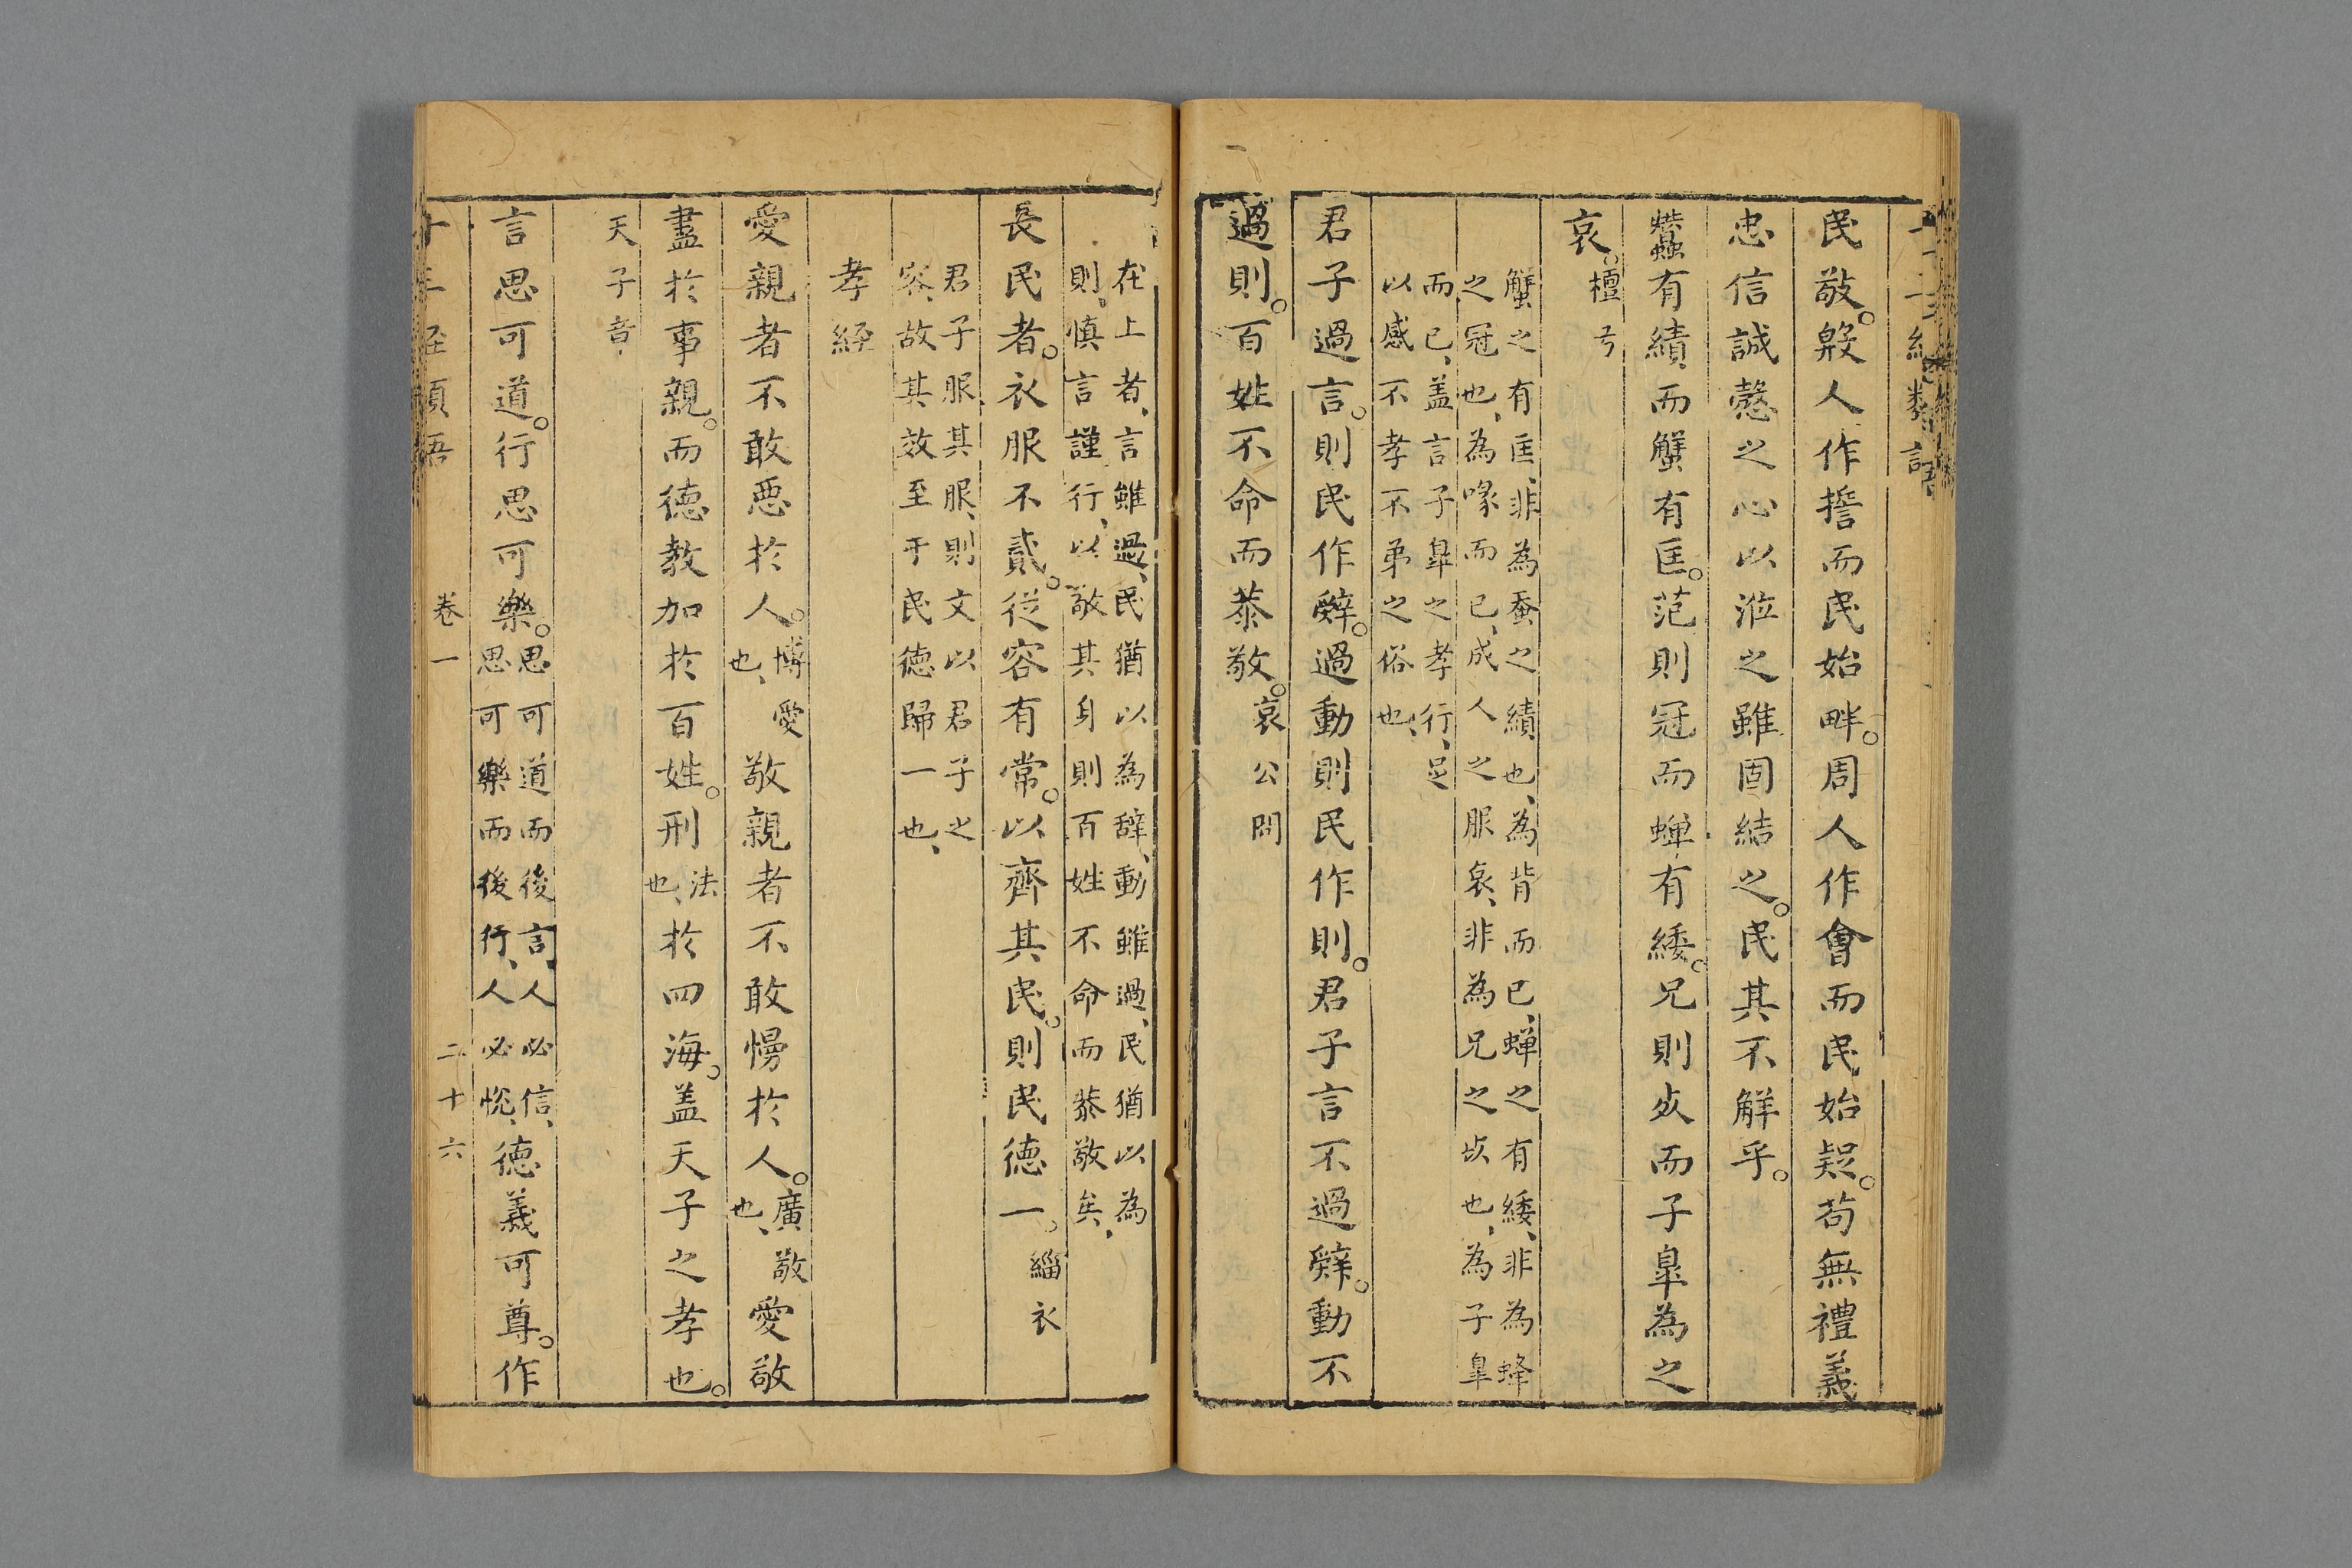 民敬。殷人作誓而民始畔。周人作會而民始疑。苟無禮義
忠信誠慤之心以涖之雖固結之。民其不解乎。
蠶有績、而蟹有匡。范則冠而蟬有緌。兄則死而子臯為之
衰。檀弓
蟹之有匡、非為蚕之績也、為背而已、蟬之有緌、非為蜂
之冠也、為喙而已、成人之服衰、非為兄之死也、為子臯
而已、盖言子臯之孝行、足
以感不孝不弟之俗也、
君子過言。則民作辭。過動則民作則。君子言不過辭。動不
過則。百姓不命而恭敬。哀公問
在上者、言雖過、民猶以為辞、動雖過、民猶以為
則、慎言謹行、以敬其身則百姓不命而恭敬矣、
長民者。衣服不貳。從容有常。以齊其民。則民德一。緇衣
君子服其服、則文以君子之
容、故其效至于民德歸一也、
孝經
愛親者不敢惡於人。博愛也、敬親者不敢慢於人。廣敬也、愛敬
盡於事親。而德教加於百姓。刑法也、於四海。盖天子之孝也。
天子章
言思可道。行思可樂。思可道而後言、人必信、思可樂而後行、人必悅、德義可尊。作
卷一 二十六